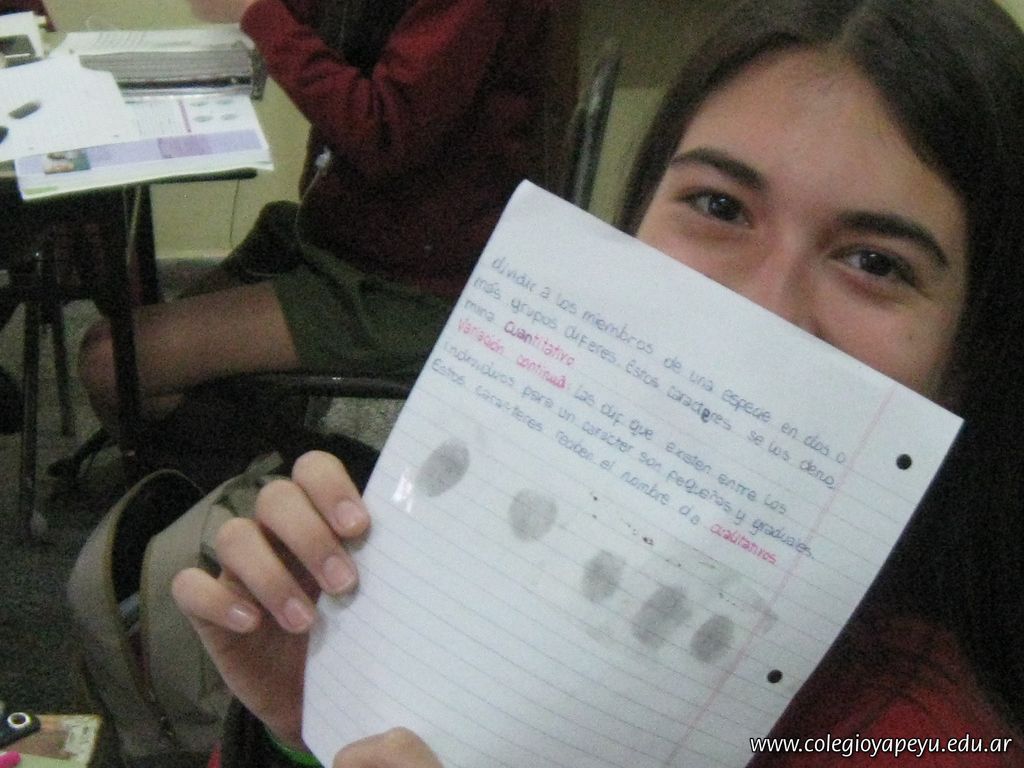 dividir a los miembros de una especie en dos o
más grupos diferes. Estos caracteres se los deno
mina cuantitativo
Variación continua las dif que existen entre los
individuos para un caracter son pequeñas y graduales.
Estos caracteres reciben el nombre de cualitativos
www.colegioyapeyu.edu.ar